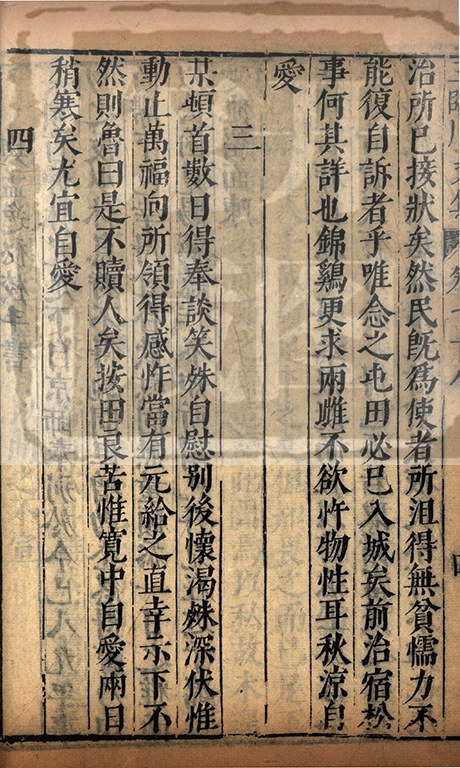 治所已接狀矣然民既爲使者所沮得無貧懦力不
能復自訴者乎唯念之屯田必已入城矣前治宿松
事何其詳也錦鷄更求兩雌不欲忤物性耳秋涼自
愛
三
某頓首數日得奉談笑殊自慰別後懷渴殊深伏惟
動止萬福向所領得感怍當有元給之直幸示下不
然則魯曰是不贖人矣按田良苦惟寛中自愛兩日
稍寒矣尤宜自愛
四